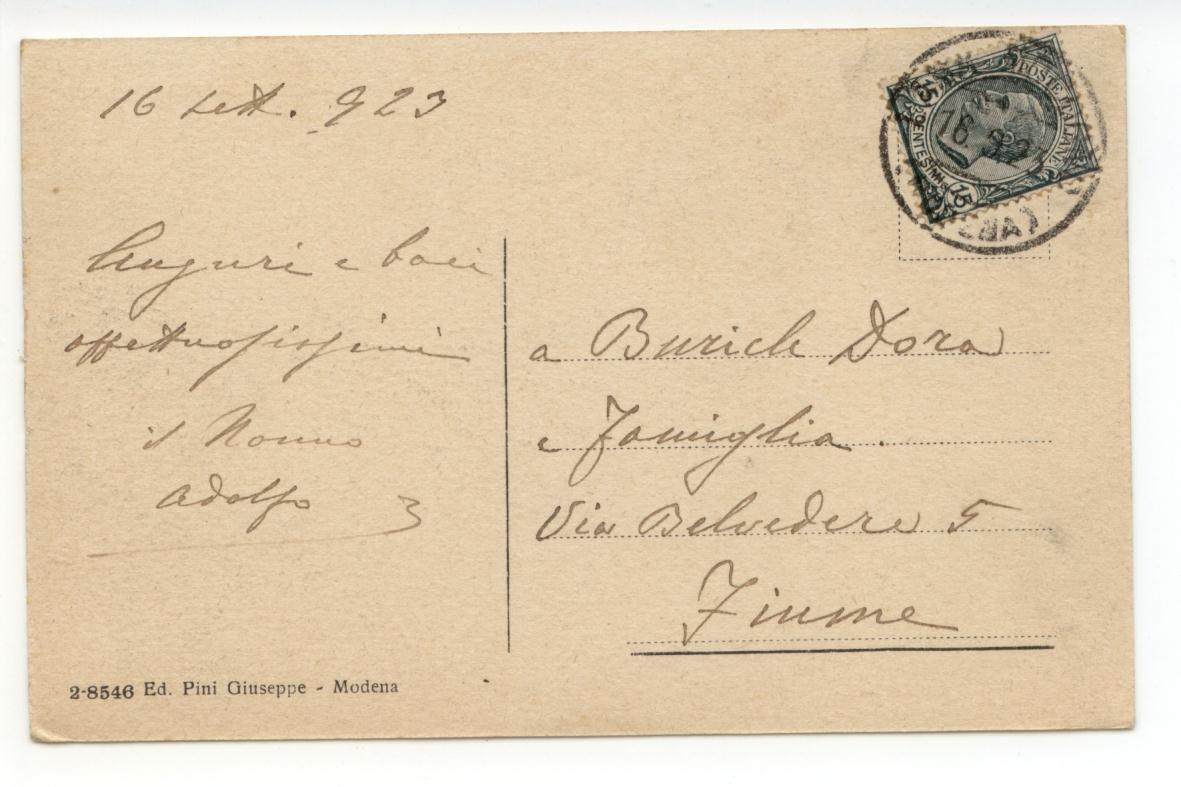 16 sett. 923
Auguri e baci
affettuosissimi
il Nonno
Adolfo
POSTE ITALIANE
15 CENTESIMI 15
16 9 2
ENA)
a Burich Dora
e Famiglia.
Via Belvedere 5
Fiume
2-8546 Ed. Pini Giuseppe - Modena